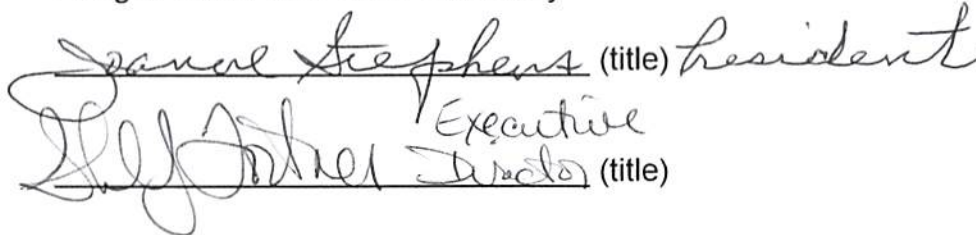 Joanne Stephens (title) President
Executive
Director (title)